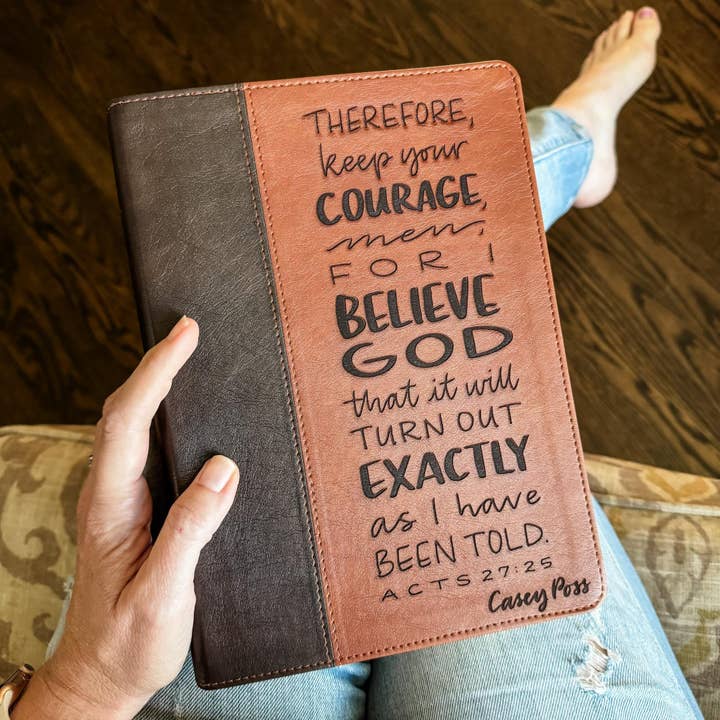 THEREFORE,
keep your
COURAGE,
men,
FOR I
BELIEVE
GOD
that it will
TURN OUT
EXACTLY
as I have
BEEN TOLD.
ACTS 27:25
Casey Poss